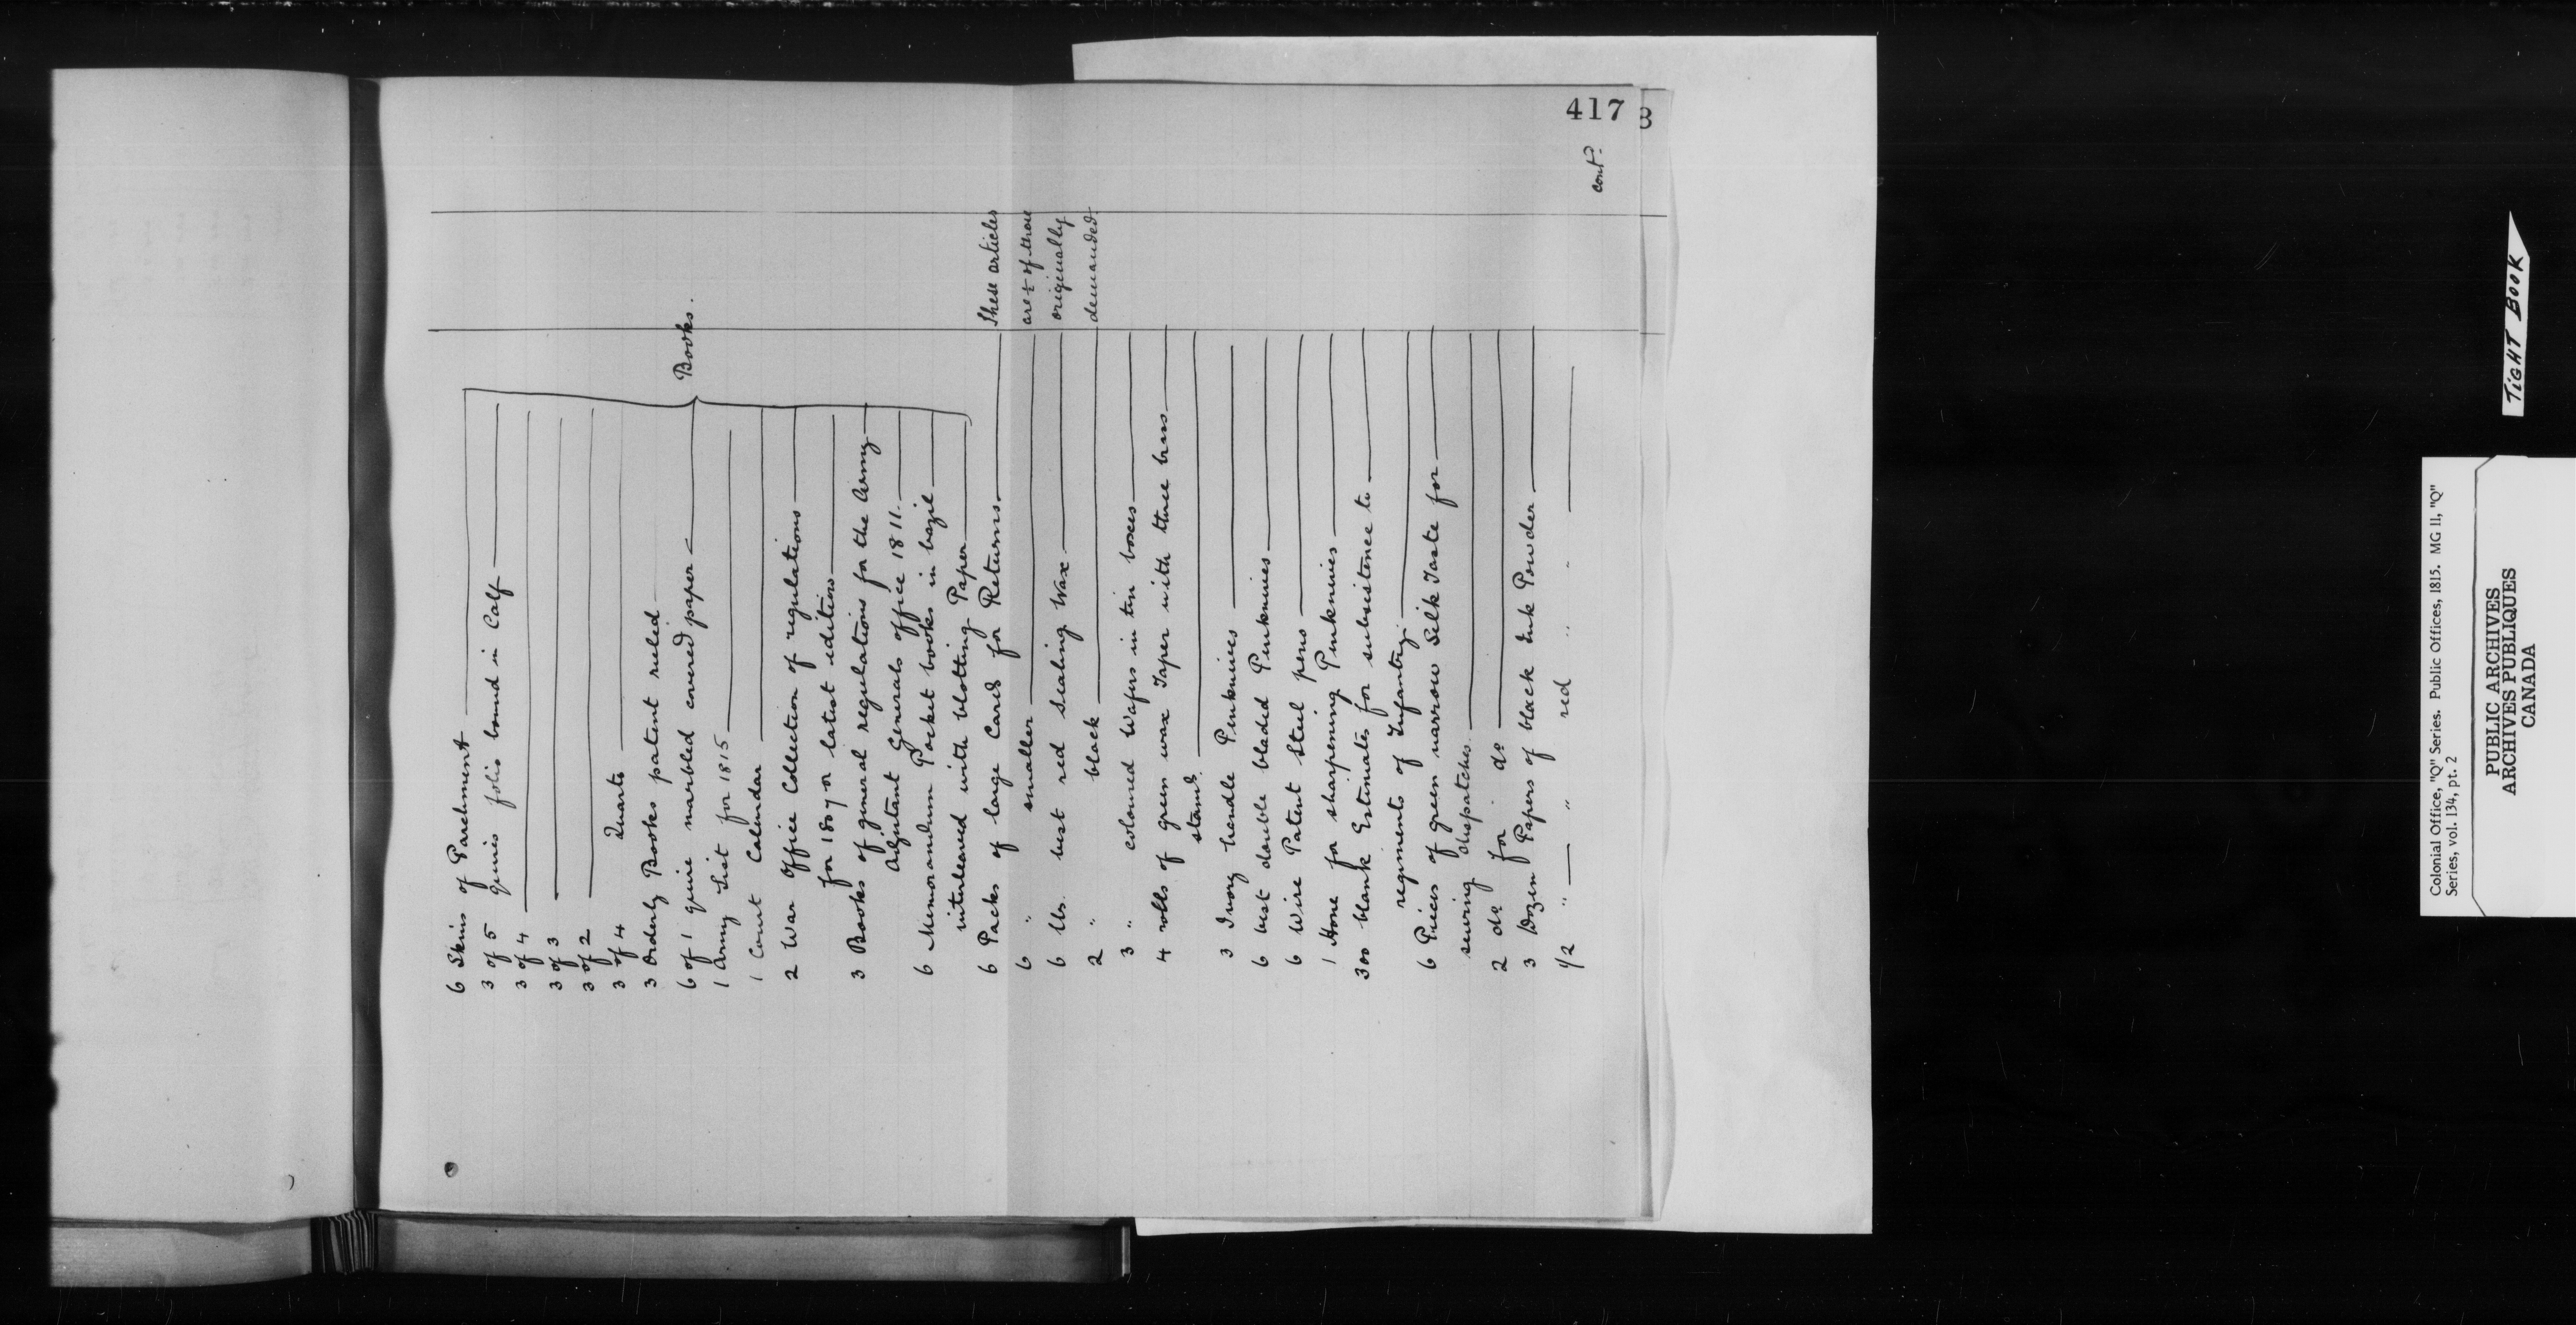 417
6 Skins of Parchment
3 of 5 quires folio bound in Calf
3 of 4
3 of 3
3 of 2
3 of 4 Quarts
3 Orderly Books patent ruled
6 of 1 quire marbled covered paper
1 Army List for 1815
1 Court Calendar
2 War Office Collection of regulations
for 1807 or latest editions
3 Books of general regulations for the Army
Adjutant Generals office 1811.
6 Memorandum Pocket books in bazil
interleaved with blotting Paper
Books.
6 Packs of large Cards for Returns
6 " smaller
6 lbs. best red sealing Wax
2 " black
These articles
are ½ of those
originally
demanded
3 " coloured Wafers in tin boxes
4 rolls of green wax Taper with three brass
stands
3 Ivory handle Penknives
6 best double bladed Penknives
6 Wire Patent Steel pens
1 Hone for sharpening Penknives
300 blank Estimates for subsistence to
regiments of Infantry.
6 Pieces of green narrow Silk Taste for
sewing dispatches.
2 do for do
3 Dozen Papers of black Ink Powder
1/2 " — " red " "
cont?
TIGHT BOOK
Colonial Office, "Q" Series. Public Offices, 1815. MG 11, "Q"
Series, vol. 134, pt. 2
PUBLIC ARCHIVES
ARCHIVES PUBLIQUES
CANADA